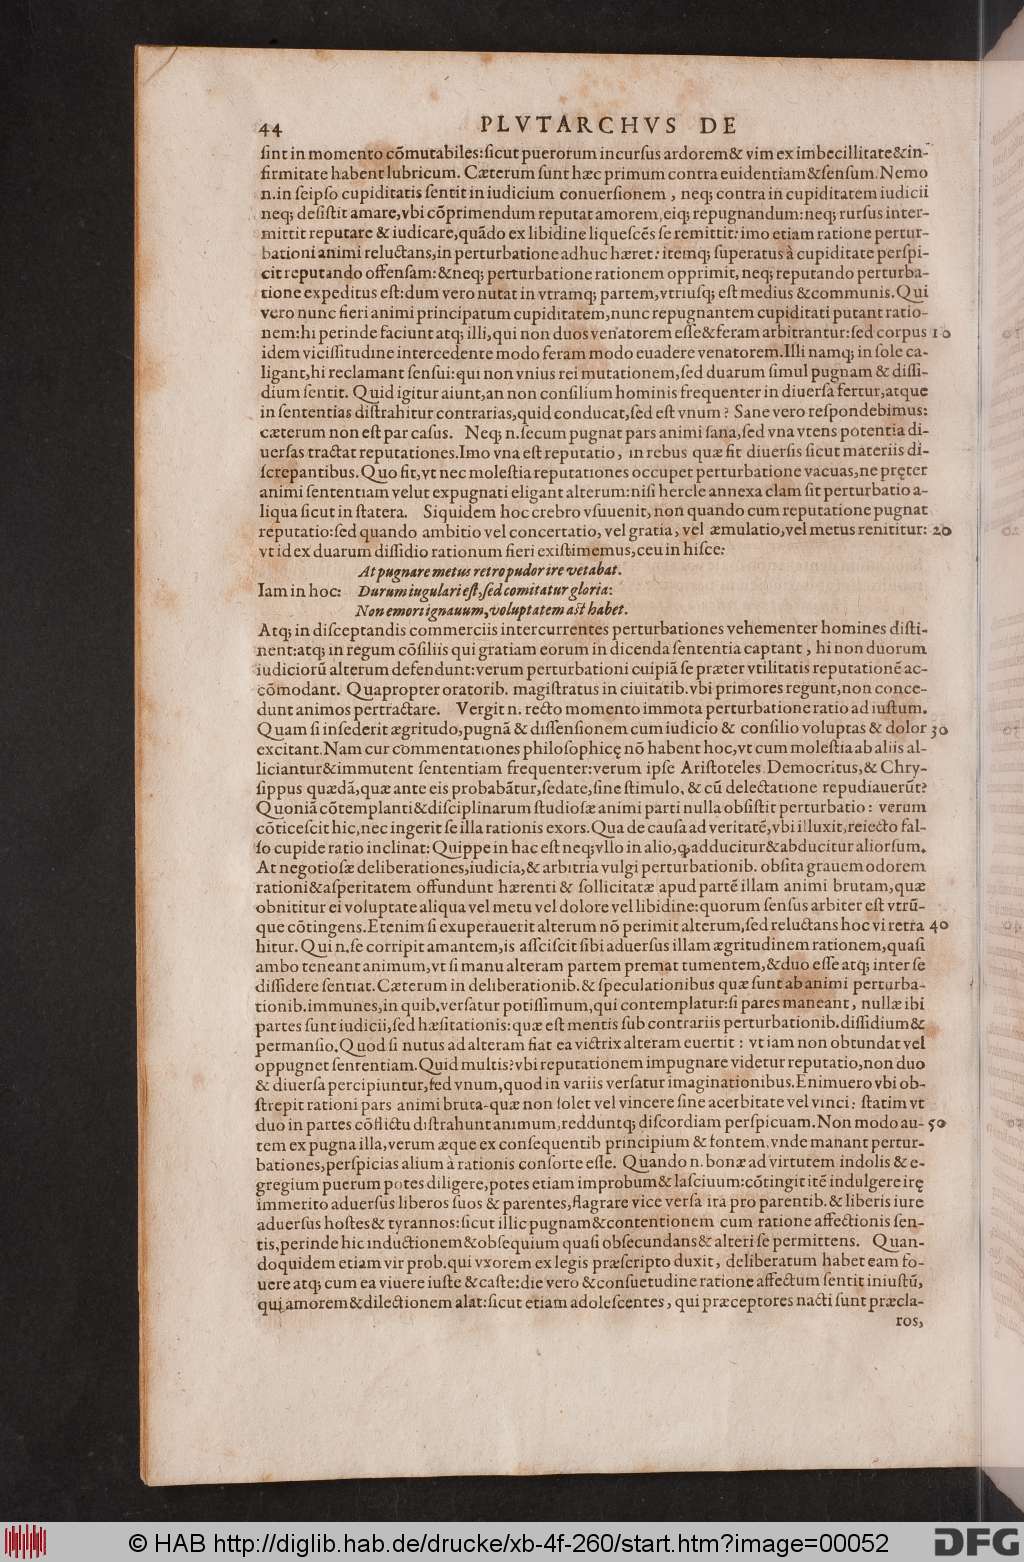 44 PLVTARCHVS DE
ſint in momento cõmutabiles:ſicut puerorum incurſus ardorem& vim ex imbecillitate&in-
firmitate habent lubricum. Cæterum ſunt hæc primum contra euidentiam&ſenſum. Nemo
n.in ſeipſo cupiditatis ſentit in iudicium conuerſionem , neq; contra in cupiditatem iudicii
neq; deſiſtit amare,vbi cõprimendum reputat amorem,eiq; repugnandum:neq; rurſus inter-
mittit reputare & iudicare,quãdo ex libidine liqueſcẽs ſe remittit: imo etiam ratione pertur-
bationi animi reluctans,in perturbatione adhuc hæret: itemq; ſuperatus à cupiditate perſpi-
cit reputando offenſam:&neq; perturbatione rationem opprimit, neq; reputando perturba-
tione expeditus eſt:dum vero nutat in vtramq; partem,vtriuſq; eſt medius &communis.Qui
vero nunc fieri animi principatum cupiditatem,nunc repugnantem cupiditati putant ratio-
nem:hi perinde faciunt atq; illi,qui non duos venatorem eſſe&feram arbitrantur:ſed corpus 10
idem viciſſitudine intercedente modo feram modo euadere venatorem.Illi namq; in ſole ca-
ligant,hi reclamant ſenſui:qui non vnius rei mutationem,ſed duarum ſimul pugnam & diſſi-
dium ſentit. Quid igitur aiunt,an non conſilium hominis frequenter in diuerſa fertur,atque
in ſententias diſtrahitur contrarias,quid conducat,ſed eſt vnum ? Sane vero reſpondebimus:
cæterum non eſt par caſus. Neq; n.ſecum pugnat pars animi ſana,ſed vna vtens potentia di-
uerſas tractat reputationes.Imo vna eſt reputatio , in rebus quæ fit diuerſis ſicut materiis di-
ſcrepantibus.Quo fit,vt nec moleſtia reputationes occupet perturbatione vacuas,ne pręter
animi ſententiam velut expugnati eligant alterum:niſi hercle annexa clam ſit perturbatio a-
liqua ſicut in ſtatera. Siquidem hoc crebro vſuuenit, non quando cum reputatione pugnat
reputatio:ſed quando ambitio vel concertatio, vel gratia, vel æmulatio,vel metus renititur: 20
vt id ex duarum diſſidio rationum fieri exiſtimemus,ceu in hiſce:
At pugnare metus retro pudor ire vetabat.
Iam in hoc: Durum iugulari eſt,ſed comitatur gloria:
Non emori ignauum,voluptatem aſt habet.
Atq; in diſceptandis commerciis intercurrentes perturbationes vehementer homines diſti-
nent:atq; in regum cõſiliis qui gratiam eorum in dicenda ſententia captant , hi non duorum
iudiciorũ alterum defendunt:verum perturbationi cuipiã ſe præter vtilitatis reputationẽ ac-
cõmodant. Quapropter oratorib. magiſtratus in ciuitatib.vbi primores regunt,non conce-
dunt animos pertractare. Vergit n. recto momento immota perturbatione ratio ad iuſtum.
Quam ſi inſederit ægritudo,pugnã & diſſenſionem cum iudicio & conſilio voluptas & dolor 30
excitant.Nam cur commentationes philoſophicę nõ habent hoc,vt cum moleſtia ab aliis al-
liciantur&immutent ſententiam frequenter:verum ipſe Ariſtoteles Democritus,& Chry-
ſippus quædã,quæ ante eis probabãtur,ſedate,ſine ſtimulo, & cũ delectatione repudiauerũt?
Quoniã cõtemplanti&diſciplinarum ſtudioſæ animi parti nulla obſiſtit perturbatio : verum
cõticeſcit hic,nec ingerit ſe illa rationis exors.Qua de cauſa ad veritatẽ,vbi illuxit,reiecto fal-
ſo cupide ratio inclinat: Quippe in hac eſt neq;vllo in alio, adducitur&abducitur aliorſum.
At negotioſæ deliberationes,iudicia,& arbitria vulgi perturbationib. obſita grauem odorem
rationi&aſperitatem offundunt hærenti & ſollicitatæ apud partẽ illam animi brutam,quæ
obnititur ei voluptate aliqua vel metu vel dolore vel libidine:quorum ſenſus arbiter eſt vtrũ-
que cõtingens.Etenim ſi exuperauerit alterum nõ perimit alterum,ſed reluctans hoc vi retra 40
hitur. Qui n.ſe corripit amantem,is aſſciſcit ſibi aduerſus illam ægritudinem rationem,quaſi
ambo teneant animum,vt ſi manu alteram partem premat tumentem,&duo eſſe atq; inter ſe
diſſidere ſentiat.Cæterum in deliberationib.& ſpeculationibus quæ ſunt ab animi perturba-
tionib.immunes,in quib.verſatur potiſſimum,qui contemplatur:ſi pares maneant , nullæ ibi
partes ſunt iudicii,ſed hæſitationis:quæ eſt mentis ſub contrariis perturbationib.diſſidium&
permanſio.Quod ſi nutus ad alteram fiat ea victrix alteram euertit : vt iam non obtundat vel
oppugnet ſententiam.Quid multis?vbi reputationem impugnare videtur reputatio,non duo
& diuerſa percipiuntur,ſed vnum,quod in variis verſatur imaginationibus.Enimuero vbi ob-
ſtrepit rationi pars animi bruta-quæ non ſolet vel vincere ſine acerbitate vel vinci: ſtatim vt
duo in partes cõflictu diſtrahunt animum,redduntq; diſcordiam perſpicuam.Non modo au- 50
tem ex pugna illa,verum æque ex conſequentib principium & fontem,vnde manant pertur-
bationes,perſpicias alium à rationis conſorte eſſe. Quando n. bonæ ad virtutem indolis & e-
gregium puerum potes diligere,potes etiam improbum& laſciuum:cõtingit itẽ indulgere irę
immerito aduerſus liberos ſuos & parentes,flagrare vice verſa ira pro parentib.& liberis iure
aduerſus hoſtes& tyrannos:ſicut illic pugnam&contentionem cum ratione affectionis ſen-
tis,perinde hic inductionem&obſequium quaſi obſecundans& alteri ſe permittens. Quan-
doquidem etiam vir prob.qui vxorem ex legis præſcripto duxit, deliberatum habet eam fo-
uere atq; cum ea viuere iuſte & caſte:die vero &conſuetudine ratione affectum ſentit iniuſtũ,
qui amorem&dilectionem alat:ſicut etiam adoleſcentes, qui præceptores nacti ſunt præcla-
ros,
© HAB http://diglib.hab.de/drucke/xb-4f-260/start.htm?image=00052 DFG